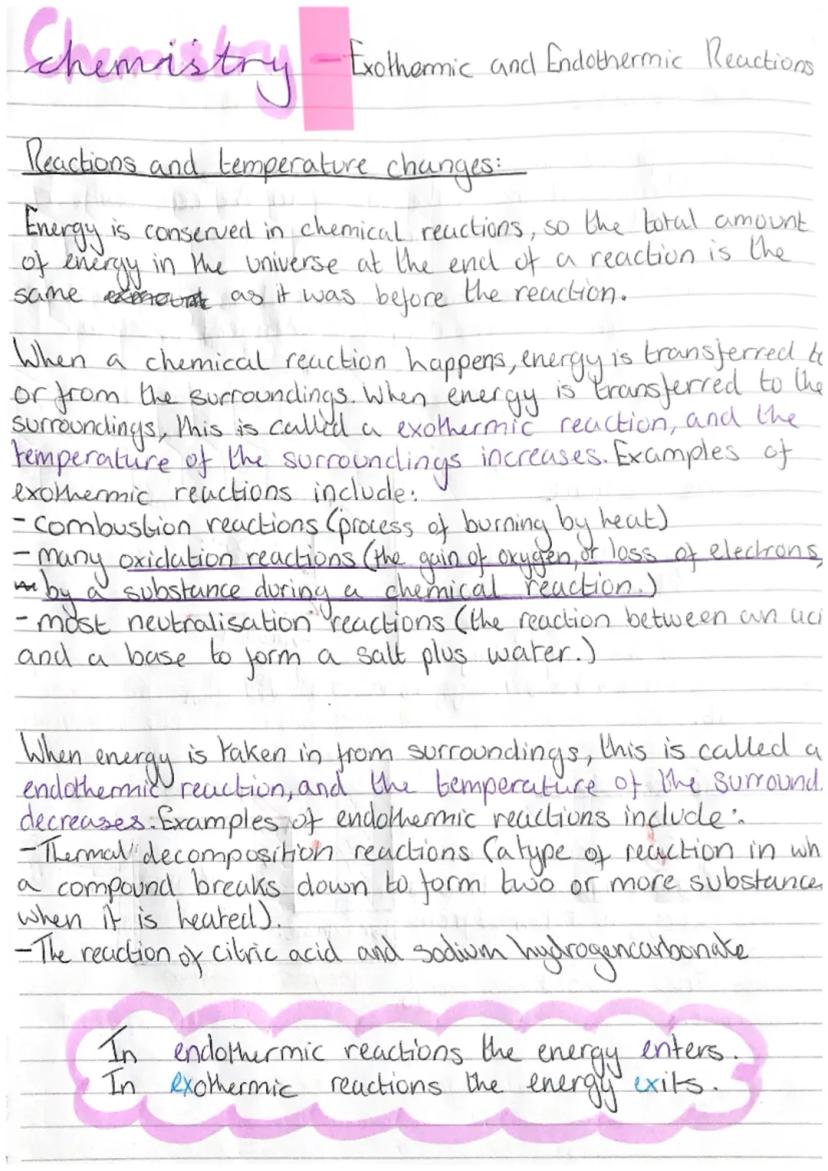 Chemistry - Exothermic and Endothermic Reactions
Reactions and temperature changes:
Energy is conserved in chemical reactions, so the total amount
of energy in the universe at the end of a reaction is the
same as it was before the reaction.
When a chemical reaction happens, energy is transferred to
or from the surroundings. When energy is transferred to the
surroundings, this is called a exothermic reaction, and the
temperature of the surroundings increases. Examples of
exothermic reactions include:
- combustion reactions (process of burning by heat)
- many oxidation reactions (the gain of oxygen, or loss of electrons,
by a substance during a chemical reaction.)
- most neutralisation reactions (the reaction between an aci
and a base to form a salt plus water.)
When energy is taken in from surroundings, this is called a
endothermic reaction, and the temperature of the surround
decreases. Examples of endothermic reactions include:
- Thermal decomposition reactions (a type of reaction in wh
a compound breaks down to form two or more substance
when it is heated).
- The reaction of citric acid and sodium hydrogencarbonate
In endothermic reactions the energy enters.
In exothermic reactions the energy exits.